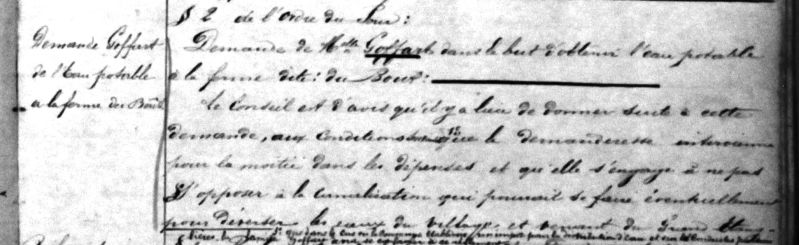 § 2 de l'Ordre du Jour:
Demande Goffart
de l'Eau potable
a la ferme du Bout
Demande de Melle Goffart dans le but d'obtenir l'eau potable
à la ferme dite: du Bout:
Le Conseil est d'avis qu'il y a lieu de donner suite à cette
demande, aux conditions 1° que la demanderesse intervienne
pour la moitié dans les dépenses et qu'elle s'engage à ne pas
s'opposer à la canalisation qui pourrait se faire éventuellement
pour déverser les eaux du village et venant du Grand